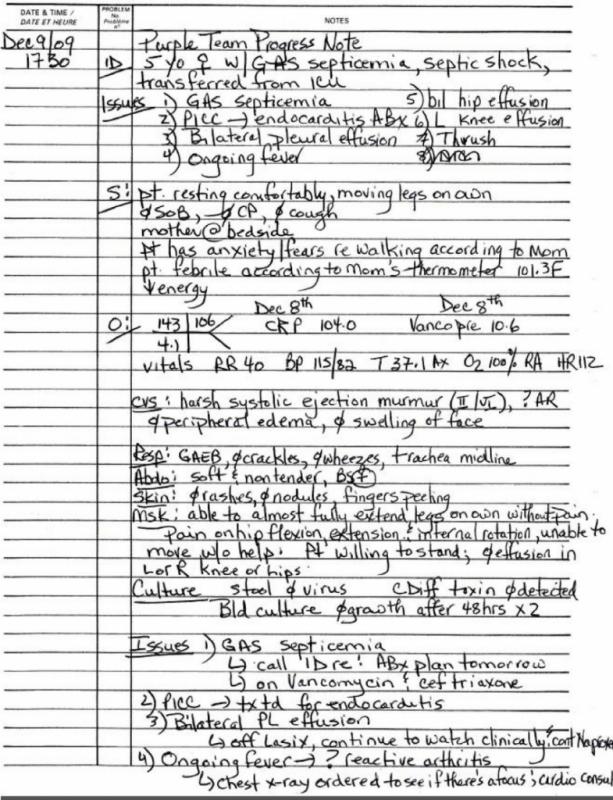 DATE & TIME / PROBLEM No. NOTES
DATE ET HEURE Problème n°
Dec 9/09 Purple Team Progress Note
1730 ID 5 yo ♀ w/ GAS septicemia, septic shock,
transferred from ICU
Issues 1) GAS septicemia 5) bil hip effusion
2) PICC → endocarditis ABx 6) L Knee effusion
3) Bilateral pleural effusion 7) Thrush
4) Ongoing fever 8)
S: pt. resting comfortably, moving legs on own
∅ SOB, ∅ CP, ∅ cough
mother @ bedside
pt has anxiety/fears re walking according to Mom
pt. febrile according to Mom's thermometer 101.3F
↓energy
Dec 8th Dec 8th
O: 143 | 106 CRP 104.0 Vanco pre 10.6
4.1
vitals RR 40 BP 115/82 T 37.1 Ax O2 100% RA HR 112
CVS: harsh systolic ejection murmur (II/VI), ? AR
∅ peripheral edema, ∅ swelling of face
Resp: GAEB, ∅ crackles, ∅ wheezes, trachea midline
Abdo: soft & nontender, BS⊕
Skin: ∅ rashes, ∅ nodules, fingers peeling
MSK: able to almost fully extend legs on own without pain.
Pain on hip flexion, extension & internal rotation, unable to
move w/o help. Pt willing to stand; ∅ effusion in
L or R knee or hips.
Culture stool ∅ virus CDiff toxin ∅ detected
Bld culture ∅ growth after 48hrs x2
Issues 1) GAS septicemia
↳ call ID re: ABx plan tomorrow
↳ on Vancomycin & ceftriaxone
2) PICC → txtd for endocarditis
3) Bilateral PL effusion
↳ off Lasix, continue to watch clinically & cont Naprox
4) Ongoing fever → ? reactive arthritis
↳ Chest x-ray ordered to see if there's a focus; cardio consul